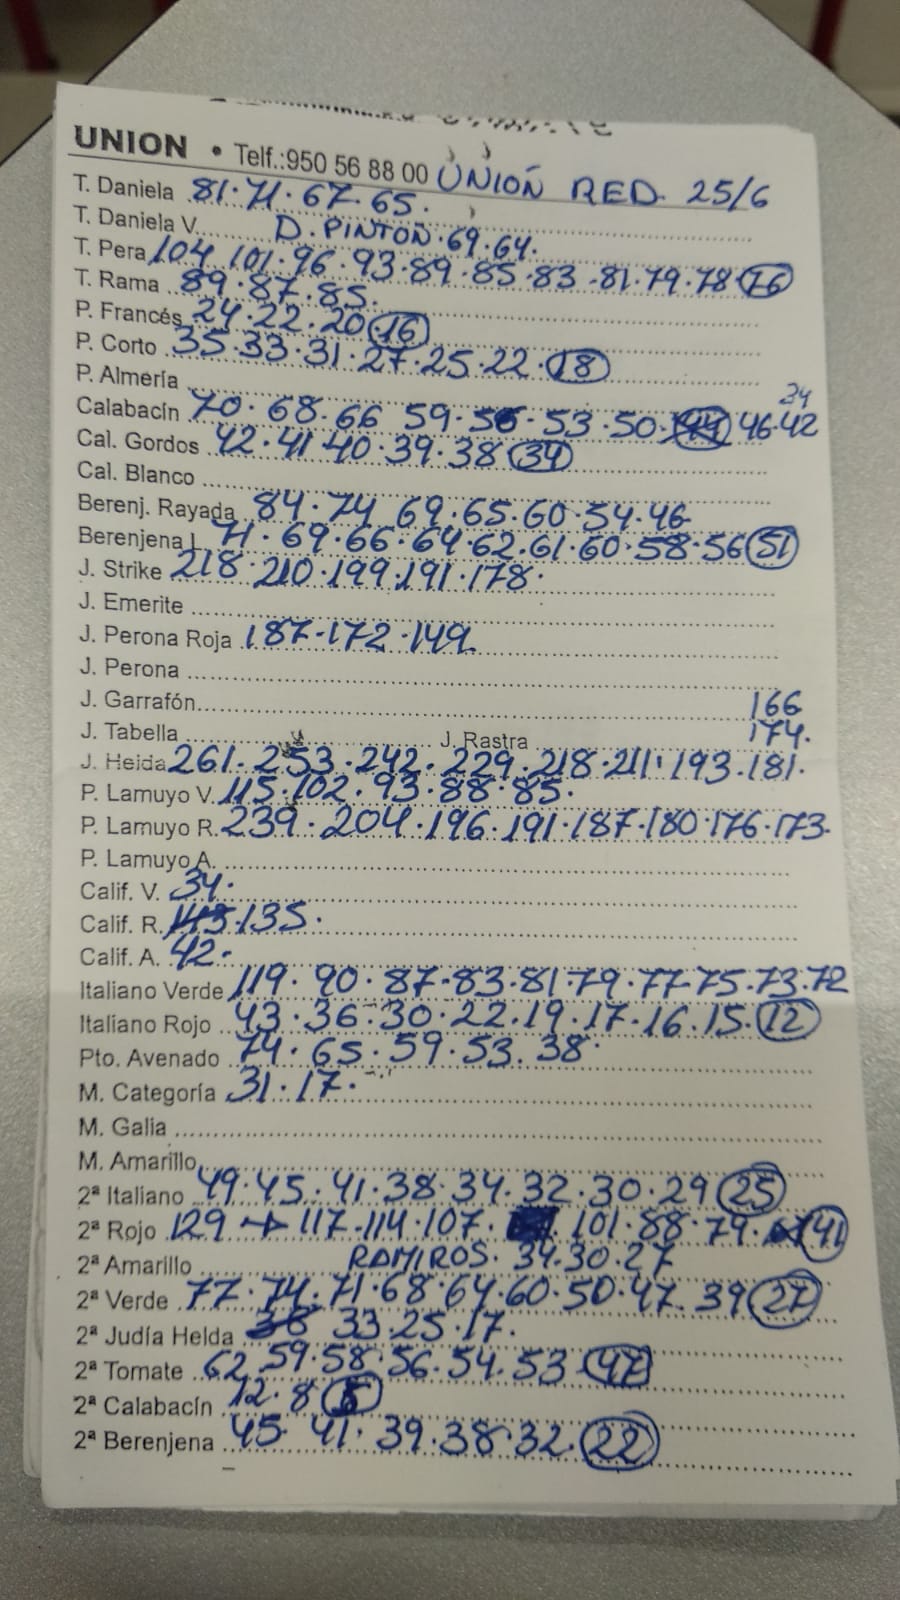 UNION • Telf.:950 56 88 00 UNIÓN RED. 25/6
T. Daniela 81.71.67.65.
T. Daniela V. D. PINTON.69.64.
T. Pera 104 101.96.93.89.85.83.81.79.78 76
T. Rama 89.87.85.
P. Francés 24.22.20 16
P. Corto 35.33.31.27.25.22.18
P. Almería
34
Calabacín 70.68.66 59.56.53.50. 46.42
Cal. Gordos 42.41 40.39.38 34
Cal. Blanco
Berenj. Rayada 84.74 69.65.60.54.46
Berenjena L 71.69.66.64.62.61.60.58.56 51
J. Strike 218.210.199.191.178.
J. Emerite
J. Perona Roja 187-172.149.
J. Perona
J. Garrafón 166
J. Tabella J. Rastra 174.
J. Helda 261.253.242.229.218.211.193.181.
P. Lamuyo V. 115.102.93.88.85.
P. Lamuyo R. 239.204.196.191.187.180.176.173.
P. Lamuyo A.
Calif. V. 34.
Calif. R. 135.
Calif. A. 42.
Italiano Verde 119.90.87.83.81.79.77.75.73.72
Italiano Rojo 43.36.30.22.19.17.16.15.12
Pto. Avenado 74.65.59.53.38.
M. Categoría 31.17.
M. Galia
M. Amarillo
2ª Italiano 49.45.41.38.34.32.30.29 25
2ª Rojo 129 → 117.114.107. 101.88.79. 41
2ª Amarillo RAMIROS. 34.30.27
2ª Verde 77.74.71.68.64.60.50.47.39 27
2ª Judía Helda 38 33.25.17.
2ª Tomate 62.59.58.56.54.53 47
2ª Calabacín 12.8 5
2ª Berenjena 45.41.39.38.32.22